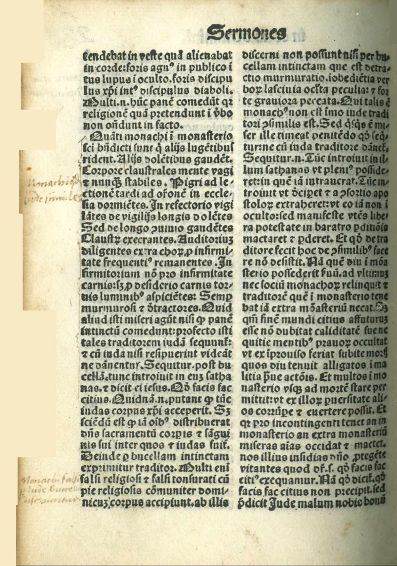 Sermones
tendebat in veste quā alienabat
in corde: foris agnꝰ in publico i
tus lupus ī oculto. foris discipu
lus xp̄i intꝰ discipulus diaboli.
Multi. n. hūc panē comedūt qr̄
religionē quā pretendunt ī ꝟbo
non ondunt in facto.
Quāti monachi ī monasterio
sc̄i bn̄dicti sunt q̄ alijs lugētibus
rident. Alijs dolētibus gaudēt.
Corpore claustrales mente vagi
⁊ nunqꝫ stabiles. Pigri ad le
ctionē tardi ad orōnē in eccle
sia dormiētes. In refectorio vigi
lātes de vigilijs longis dolētes
Sed de longo prādio gaudētes
Claustrꝝ execrantes. Auditoriuꝫ
diligentes extra chorꝝ ꝓ infirmi
tate frequentiꝰ remanentes. In
firmitorium nō pro infirmitate
carnis: sꝫ ꝓ desiderio carnis tor
uis luminibꝰ aspiciētes: Semꝑ
murmurosi ⁊ detractores. Quid
aliud isti miseri agūt nisi ꝙ panē
intinctū comedunt: profecto isti
tales traditorem iudā sequunt̄:
⁊ cū iuda nisi resipuerint videāt
ne dānentur. Sequitur. post bu
cellā. tunc introiuit in eum satha
nas. ⁊ dicit ei iesus. Qd̄ facis fac
citius. Quidā. n. putant ꝙ tūc
iudas corpus xp̄i acceperit. Sꝫ
sciēdū est ꝙ iā oībꝰ distribuerat
dn̄s sacramentū corpīs ⁊ sāgui
nis sui inter quos ⁊ iudas fuit.
Deinde ꝑ bucellam intinctam
exprimitur traditor. Multi enī
falsi religiosi ⁊ falsi tonsurati cū
pie religiosis cōmuniter domi
nicuꝫ corpus accipiunt. ab illis
discerni non possunt nisi per bu
cellam intinctam que est detra
ctio murmuratio. iobediētia ver
boꝝ lasciuia oculta peculia: ⁊ for
te grauiora peccata. Qui talis ē
monachꝰ non est īmo iude tradi
tori ꝓsimilis est. Sed qs̄qs ē mi
ser ille timeat penitēdo qd̄ seq̄
turne cū iuda traditore dānet̄.
Sequitur. n. Tūc introiuit in il
lum sathanas vt pleniꝰ posside
retin quē iā intrauerat. Tūc in
troiuit vt deciꝑet ⁊ a ꝯsortio apo
stolorꝝ extraheret: vt eo iā non ī
oculto: sed manifeste vtēs libe
ra potestate in baratro ꝑditiōis
mactaret ⁊ ꝑderet. Et qd̄ de tra
ditore fecit hoc de ꝯsimilibꝰ face
re nō desistit. Nā quē diu ī mōa
sterio possederit suū. ad vltimuꝫ
nec sociū monachoꝝ relinquit ⁊
traditorē quē ī monasterio tene
bat iā extra mōasteriū necat. Sꝫ
qs̄ finē mundi citius affuturuꝫ
esse nō dubitat caliditatē sue ne
quitie mentibꝰ prauoꝝ occultat
vt ex īprouiso feriat subite morsꝫ
quos diu tenuit alligatos ī ma
litia ꝓue actōis. Et multos ī mo
nasterio vsqꝫ ad mortē stare per
mittit: vt ex illoꝝ puersitate ali
os corrūpe ⁊ euertere possit. Et
qr̄ pro incontingenti tenet an in
monasterio an extra monasteriū
miseras aīas occidat ⁊ mactet.
nos illius insidias dn̄o ꝓtegēte
vitantes quod dr̄. s. qd̄ facis fac
citiꝰ exequamur. Nā qd̄ dicit. qd̄
facis fac citius non precipit. sed
p̄dicit Iude malum nobis bonū